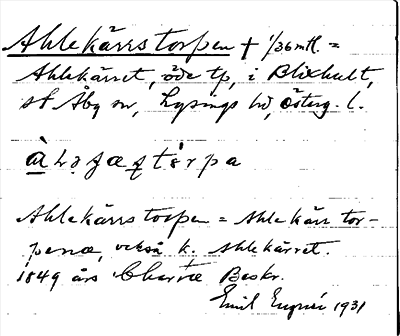 Ahlekärrstorpen † 1/36 mtl. =
Ahlekärret, öde tp, i Blixhult,
st Åby sn, Lysings hd, Österg. l.
Ahlekärrstorpen = Ahlekärr tor-
pena, också k. Ahlekärret.
1849 års Charta Beskr.
Emil Engnér 1931